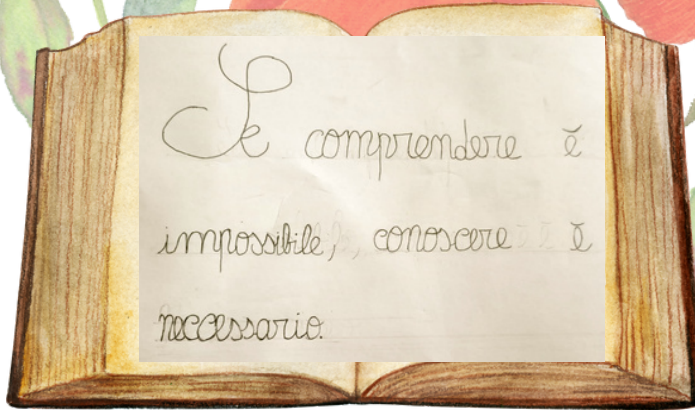 Se comprendere è
impossibile, conoscere è
neccessario.